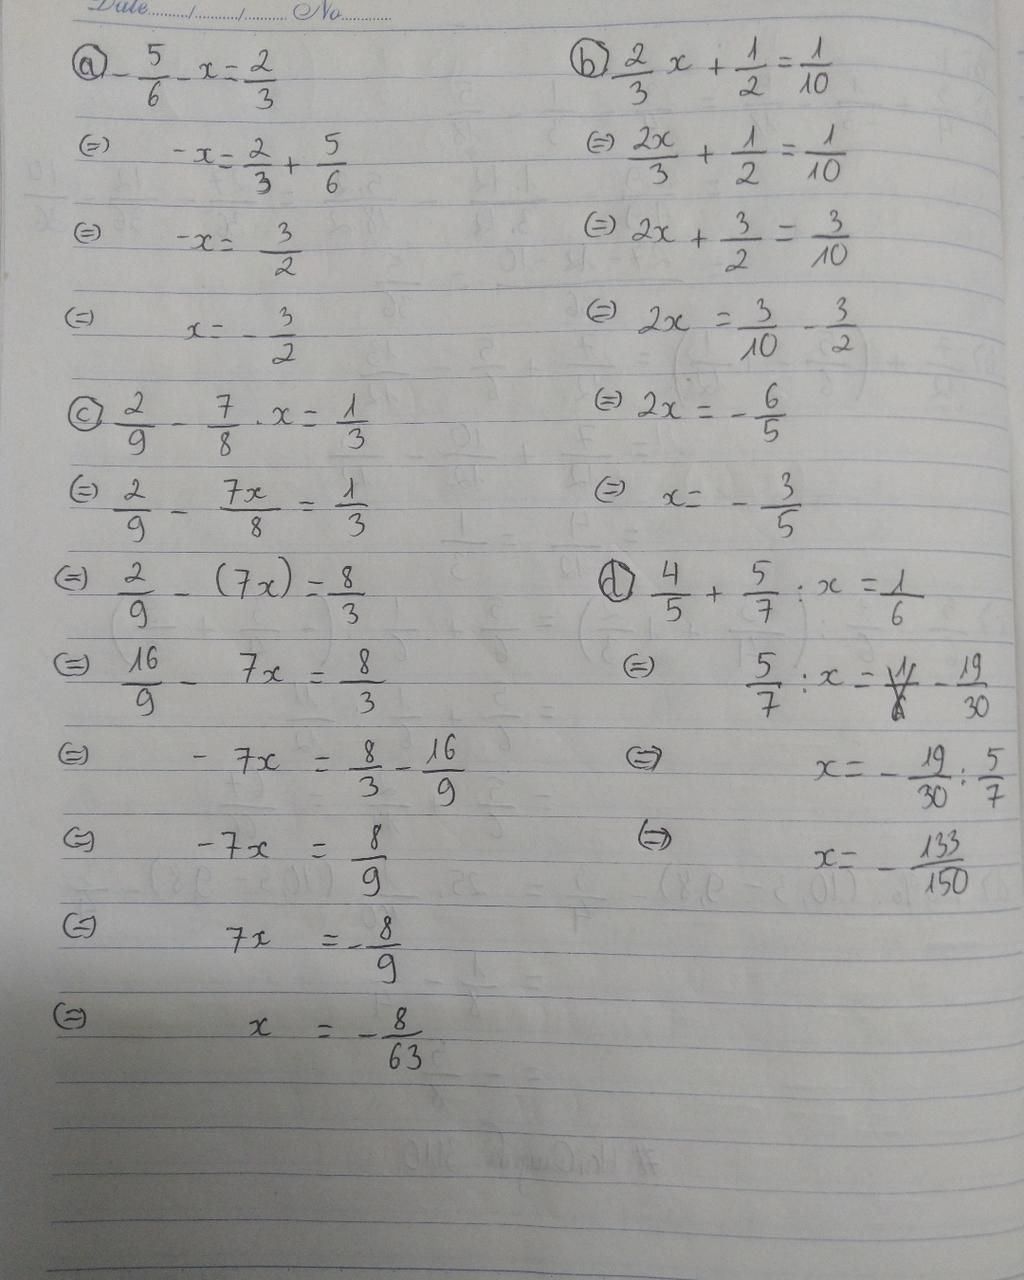 Date......../........./......... No............
a) -5/6 - x = 2/3
(=) -x = 2/3 + 5/6
(=) -x = 3/2
(=) x = -3/2
c) 2/9 - 7/8 . x = 1/3
(=) 2/9 - 7x/8 = 1/3
(=) 2/9 - (7x) = 8/3
(=) 16/9 - 7x = 8/3
(=) - 7x = 8/3 - 16/9
(=) -7x = 8/9
(=) 7x = -8/9
(=) x = -8/63
b) 2/3 x + 1/2 = 1/10
(=) 2x/3 + 1/2 = 1/10
(=) 2x + 3/2 = 3/10
(=) 2x = 3/10 - 3/2
(=) 2x = -6/5
(=) x = -3/5
d) 4/5 + 5/7 : x = 1/6
(=) 5/7 : x = - 19/30
(=) x = -19/30 : 5/7
(=) x = -133/150